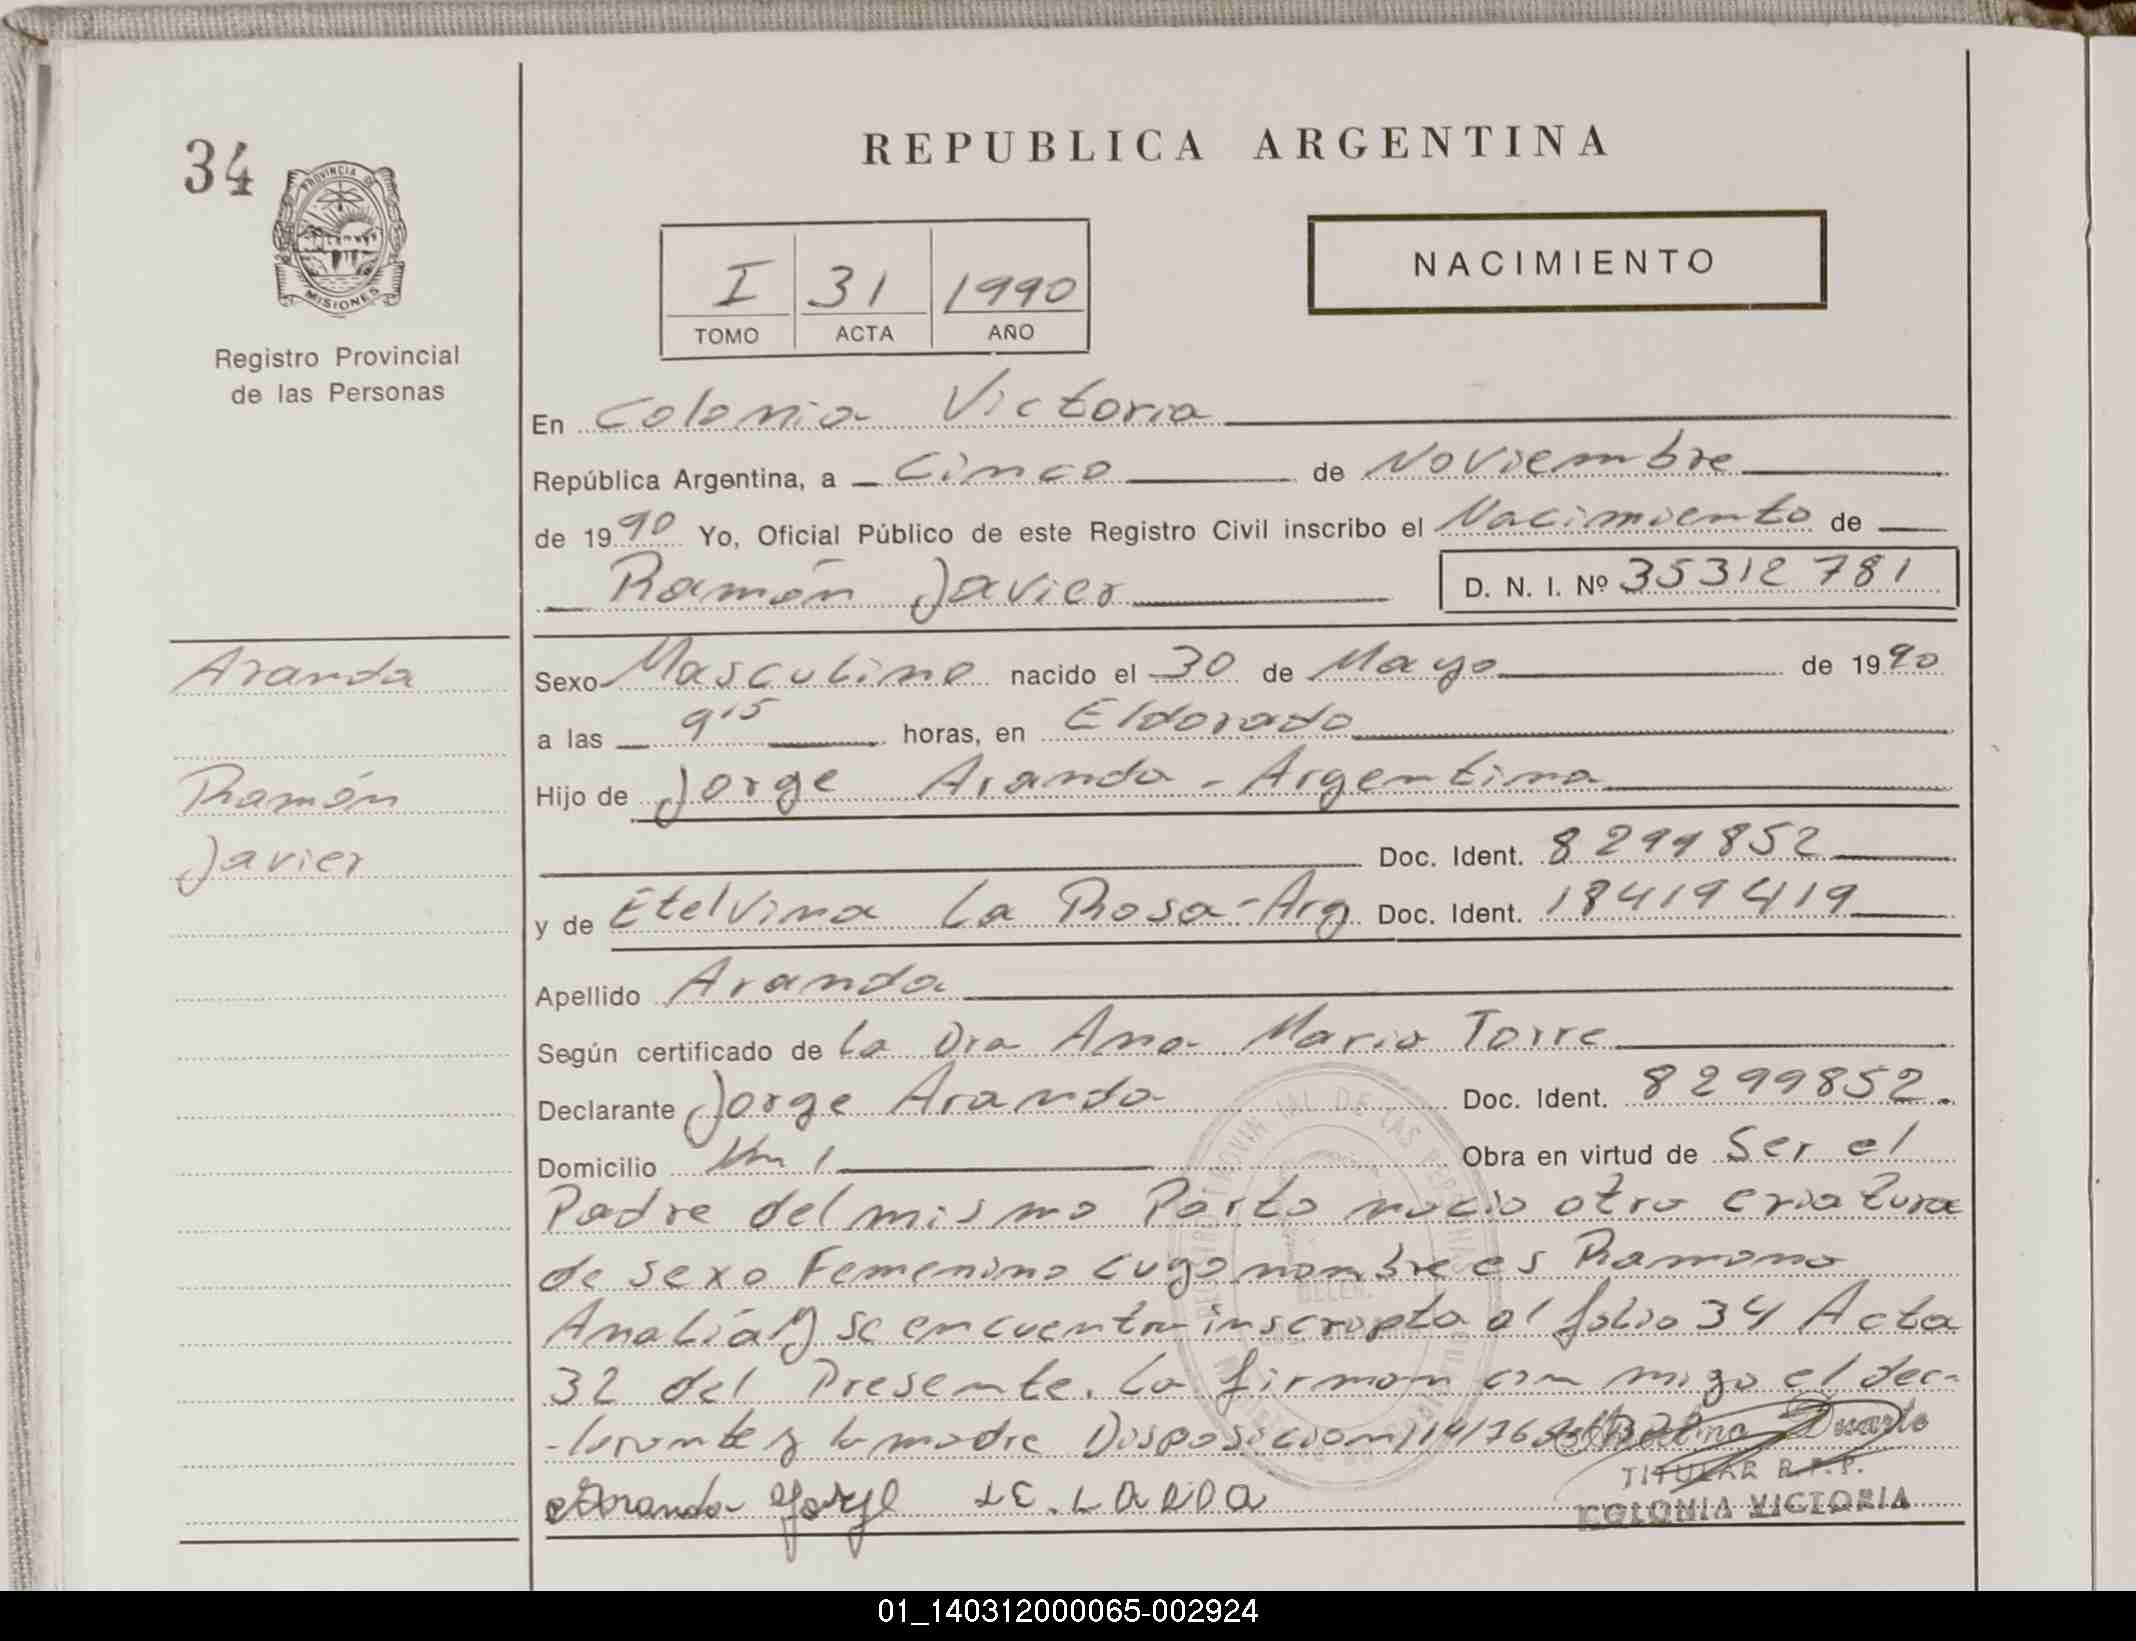 34
PROVINCIA DE
MISIONES
Registro Provincial
de las Personas
REPUBLICA ARGENTINA
I 31 1990
TOMO ACTA AÑO
NACIMIENTO
En Colonia Victoria
República Argentina, a Cinco de Noviembre
de 1990 Yo, Oficial Público de este Registro Civil inscribo el Nacimiento de
Ramón Javier D. N. I. Nº 35312781
Aranda
Ramón
Javier
Sexo Masculino nacido el 30 de Mayo de 1990
a las 9 15 horas, en Eldorado
Hijo de Jorge Aranda - Argentina
Doc. Ident. 8299852
y de Etelvina La Rosa - Arg Doc. Ident. 18419419
Apellido Aranda
Según certificado de La Dra Ana Maria Torre
Declarante Jorge Aranda Doc. Ident. 8299852.
Domicilio Km 1 Obra en virtud de Ser el
Padre del mismo Parto nacio otra criatura
de sexo Femenino cuyo nombre es Ramona
Analía y se encuentra inscripta al folio 34 Acta
32 del Presente. La firman con migo el dec-
-larante y la madre Disposicion 114/76
Aranda Jorge
Duarte
TITULAR R.P.P.
COLONIA VICTORIA
01_140312000065-002924